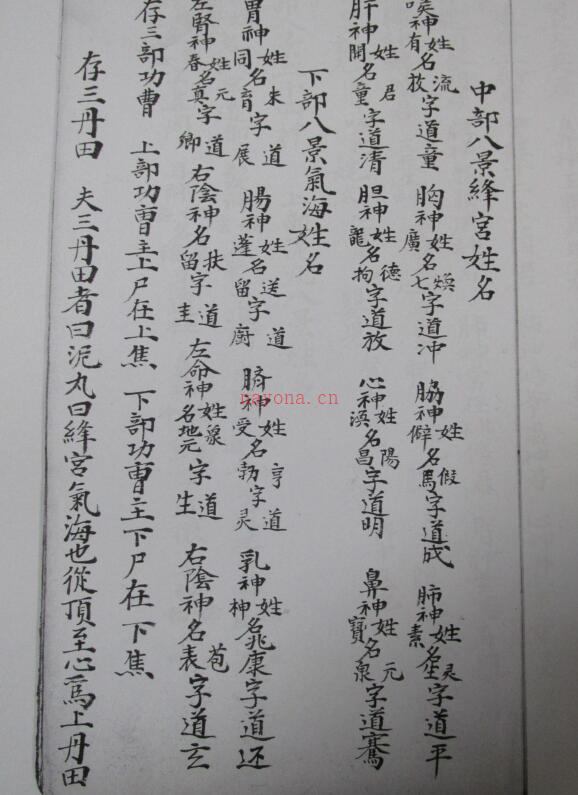 中部八景綘宮姓名
喉神姓流名有放字道童 胸神姓煥名廣七字道冲 脇神姓假名僻馬字道成 肺神姓灵名素字道平
肝神姓君名開童字道清 胆神姓德名龍拘字道放 心神姓陽名渙昌字道明 鼻神姓元名寶泉字道騫
下部八景氣海姓名
胃神姓未名同育字道展 腸神姓送名蓬留字道廚 臍神姓亨名受勃字道灵 乳神姓名神康字道还
左腎神姓元名春真字道卿 右陰神名扶留字道圭 左命神姓泉名地元字道生 右陰神名苞表字道玄
存三部功曹 上部功曹主上尸在上焦 下部功曹主下尸在下焦
存三丹田 夫三丹田者曰泥丸曰綘宮氣海也從頂至心爲上丹田
nayona.cn